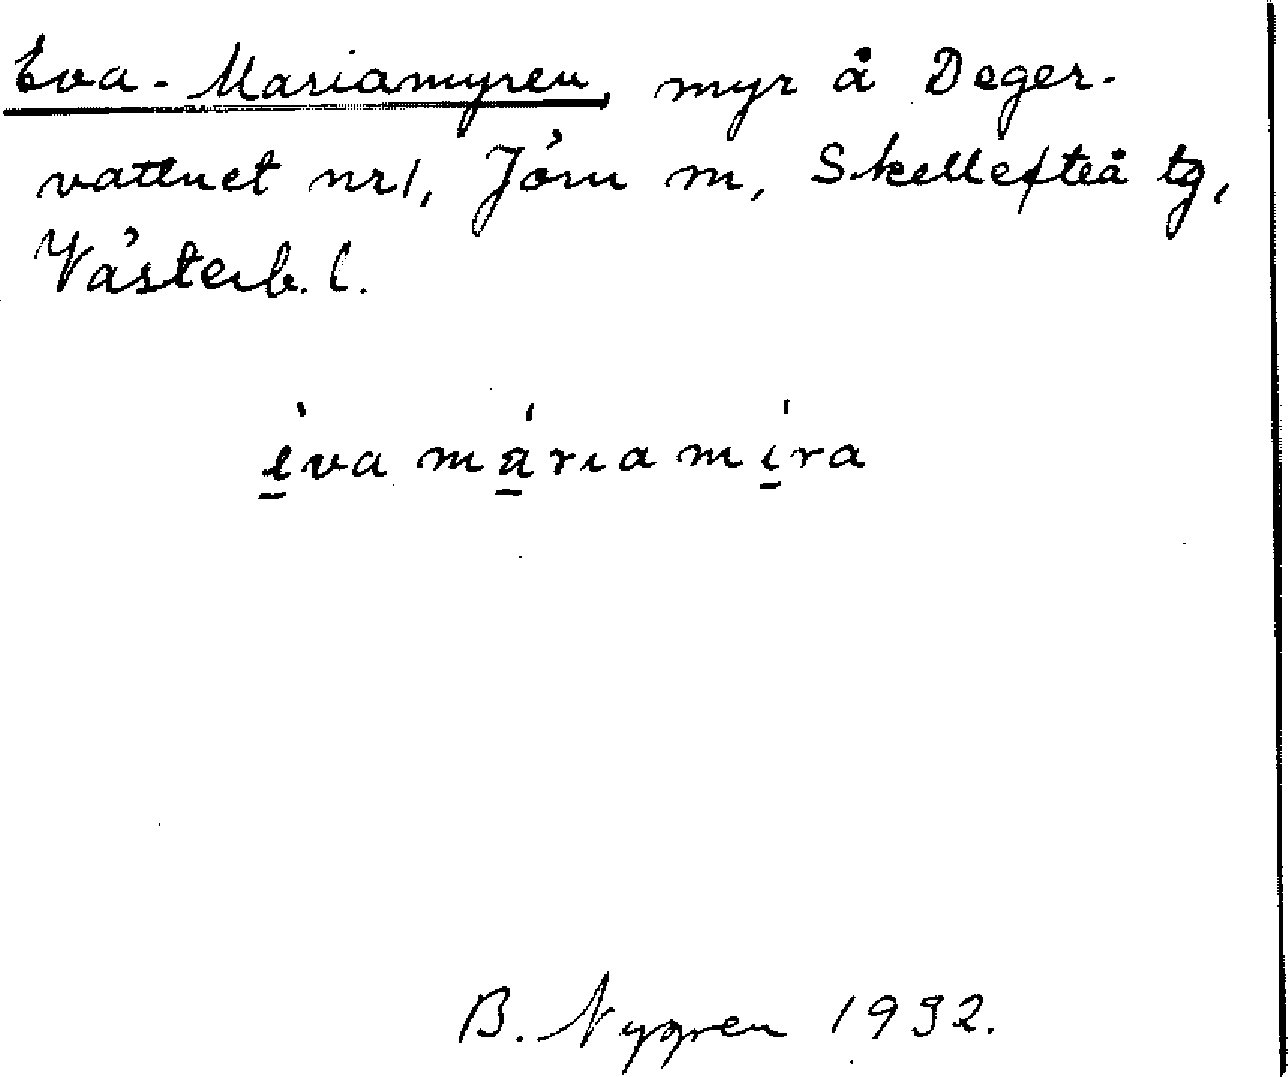 Eva-Mariamyren, myr å Deger-
vattnet nr 1, Jörn sn, Skellefteå tg,
Västerb. l.
èva máriamíra
B. Nygren 1932.